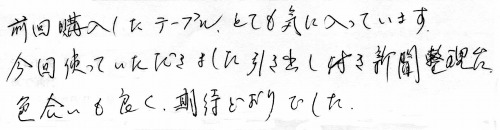 前回購入したテーブル、とても気に入っています。
今回使っていただきました引き出し付き新聞整理台、
色合いも良く、期待どおりでした。